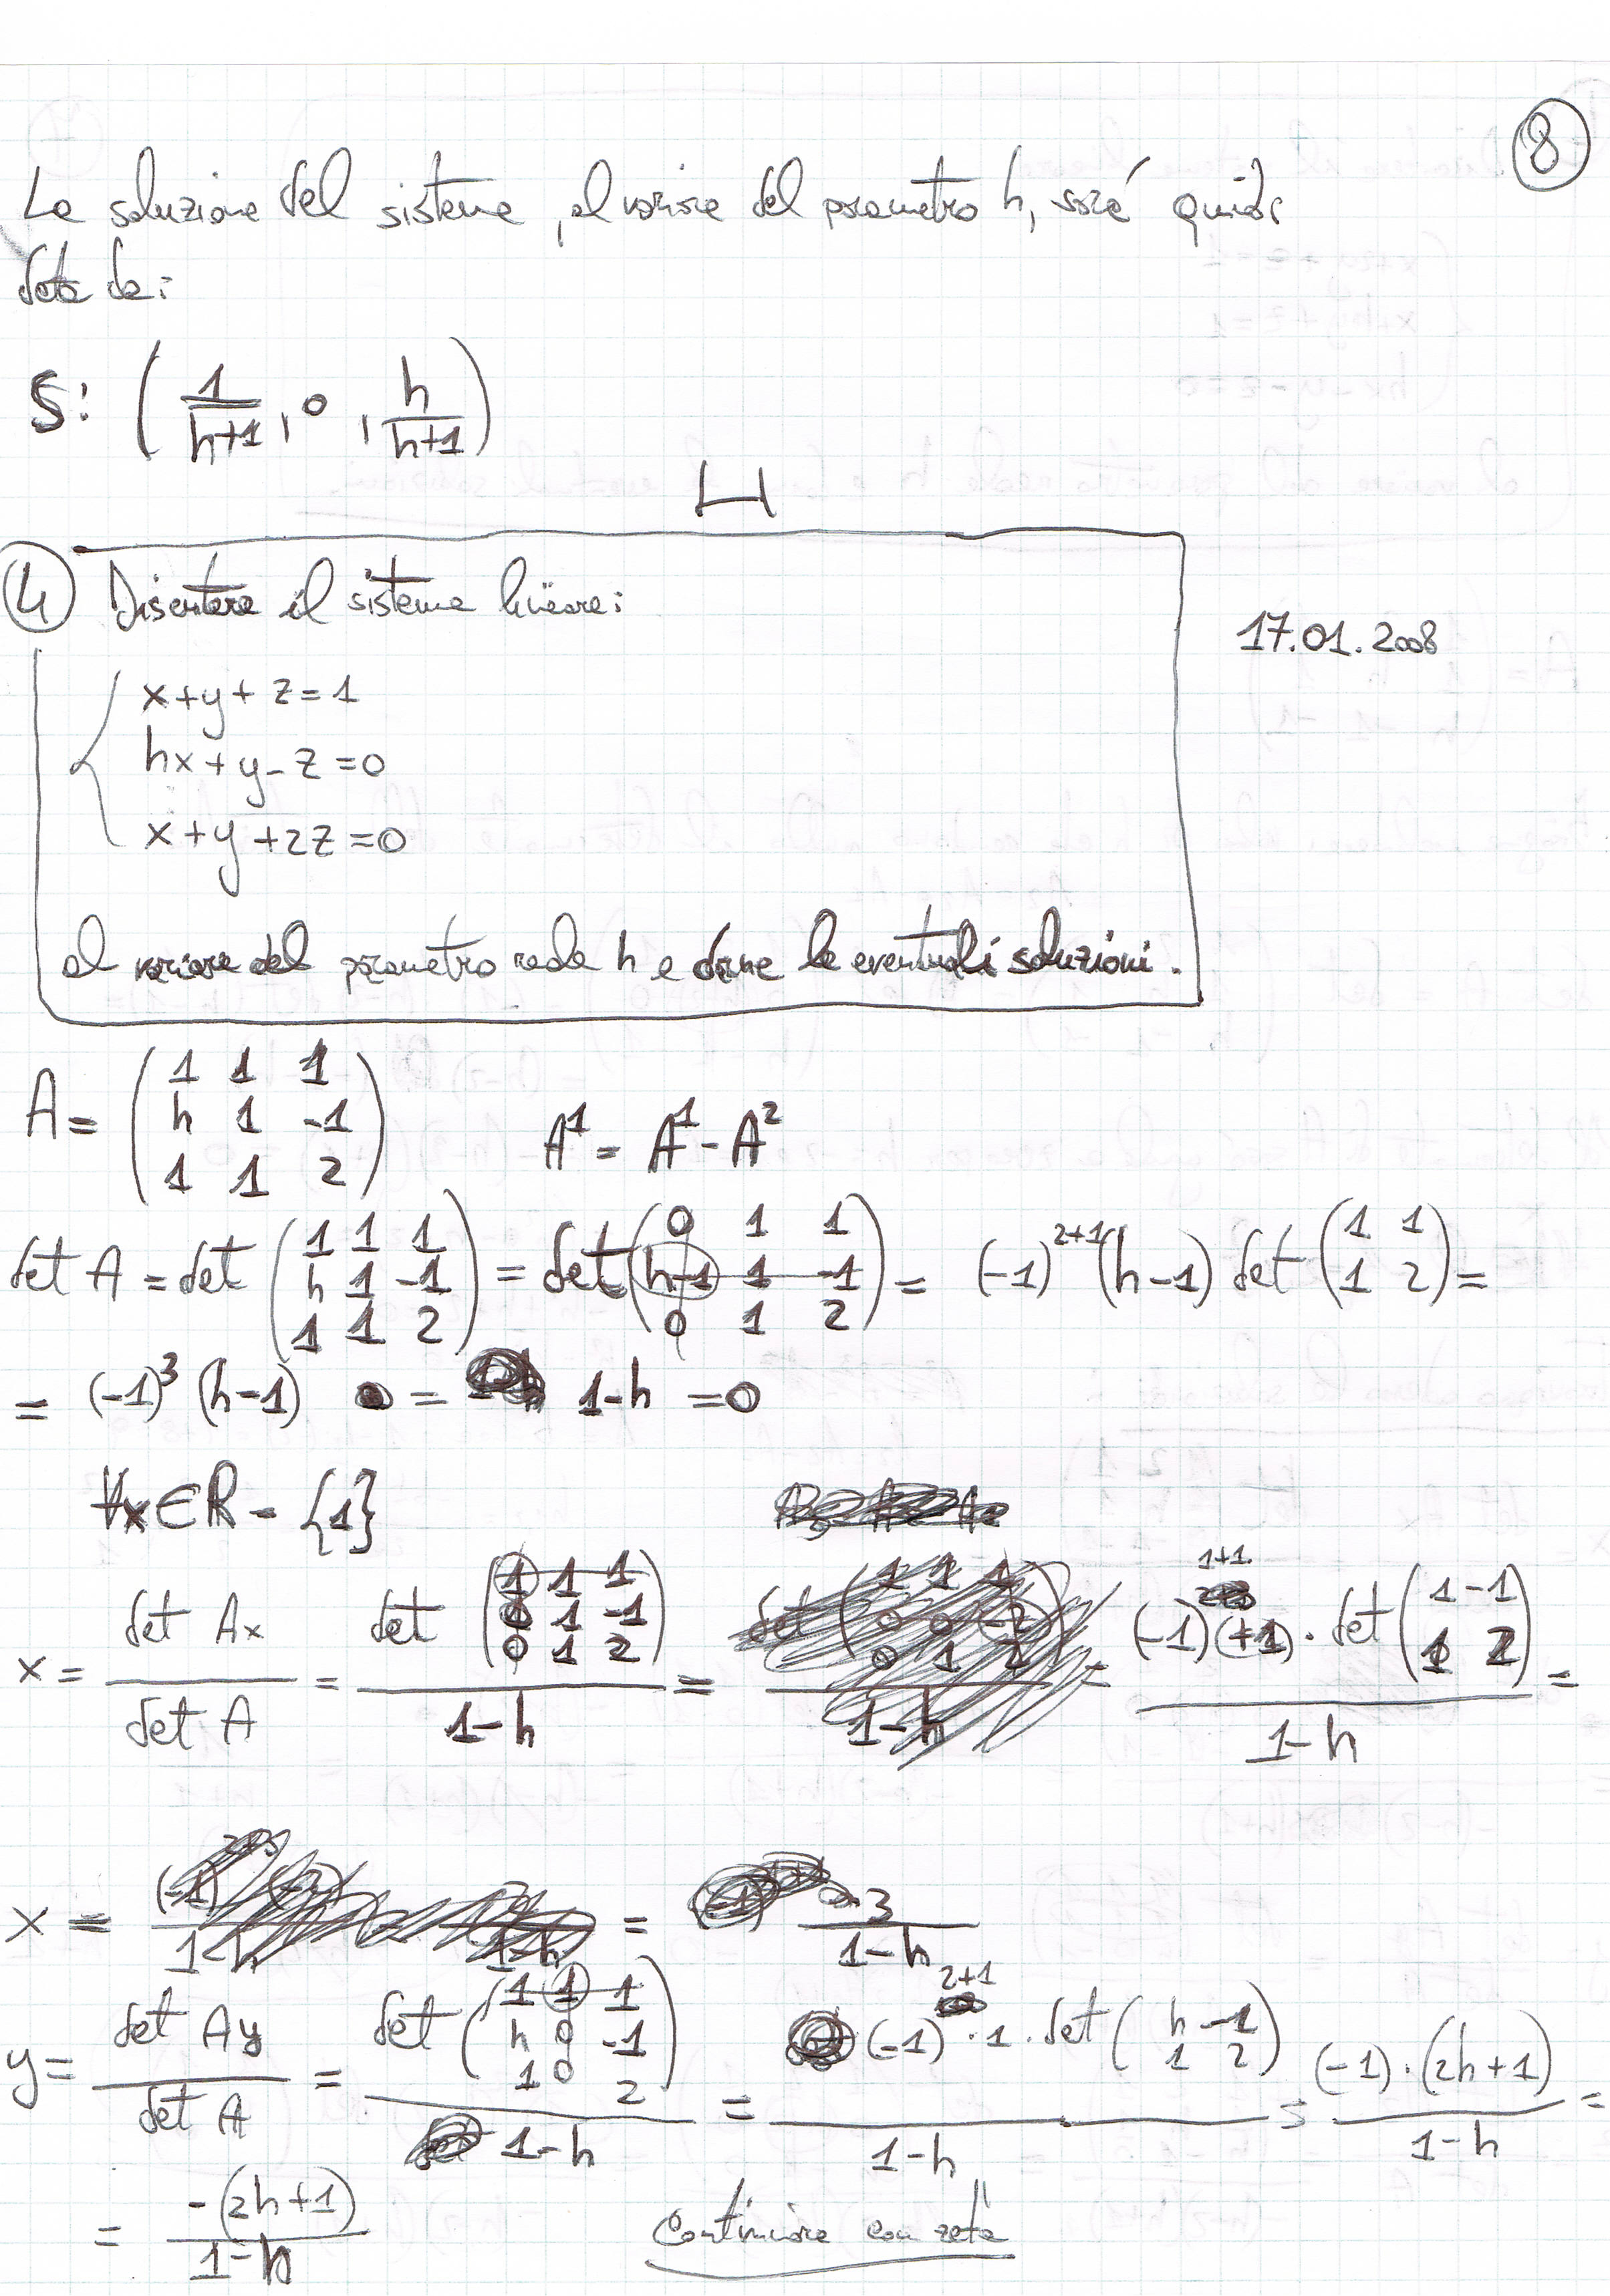 8
La soluzione del sistema, al variare del parametro h, sarà quindi
data da:
S: (1/(h+1), 0, h/(h+1))
4 Discutere il sistema lineare:
17.01.2008
x+y+z=1
hx+y-z=0
x+y+2z=0
al variare del parametro reale h e darne le eventuali soluzioni.
A = (1 1 1; h 1 -1; 1 1 2) A^1 = A^1 - A^2
det A = det (1 1 1; h 1 -1; 1 1 2) = det (0 1 1; h-1 1 -1; 0 1 2) = (-1)^(2+1) (h-1) det (1 1; 1 2) =
= (-1)^3 (h-1) = 1-h = 0
∀x∈R - {1}
x = det Ax / det A = det (1 1 1; 0 1 -1; 0 1 2) / (1-h) = = (-1)^(1+1) (+1) · det (1 -1; 1 2) / (1-h) =
x = = 3 / (1-h)
y = det Ay / det A = det (1 1 1; h 0 -1; 1 0 2) / (1-h) = (-1)^(2+1) · 1 · det (h -1; 1 2) / (1-h) = (-1) · (2h+1) / (1-h) =
= -(2h+1) / (1-h) Continuare con zeta